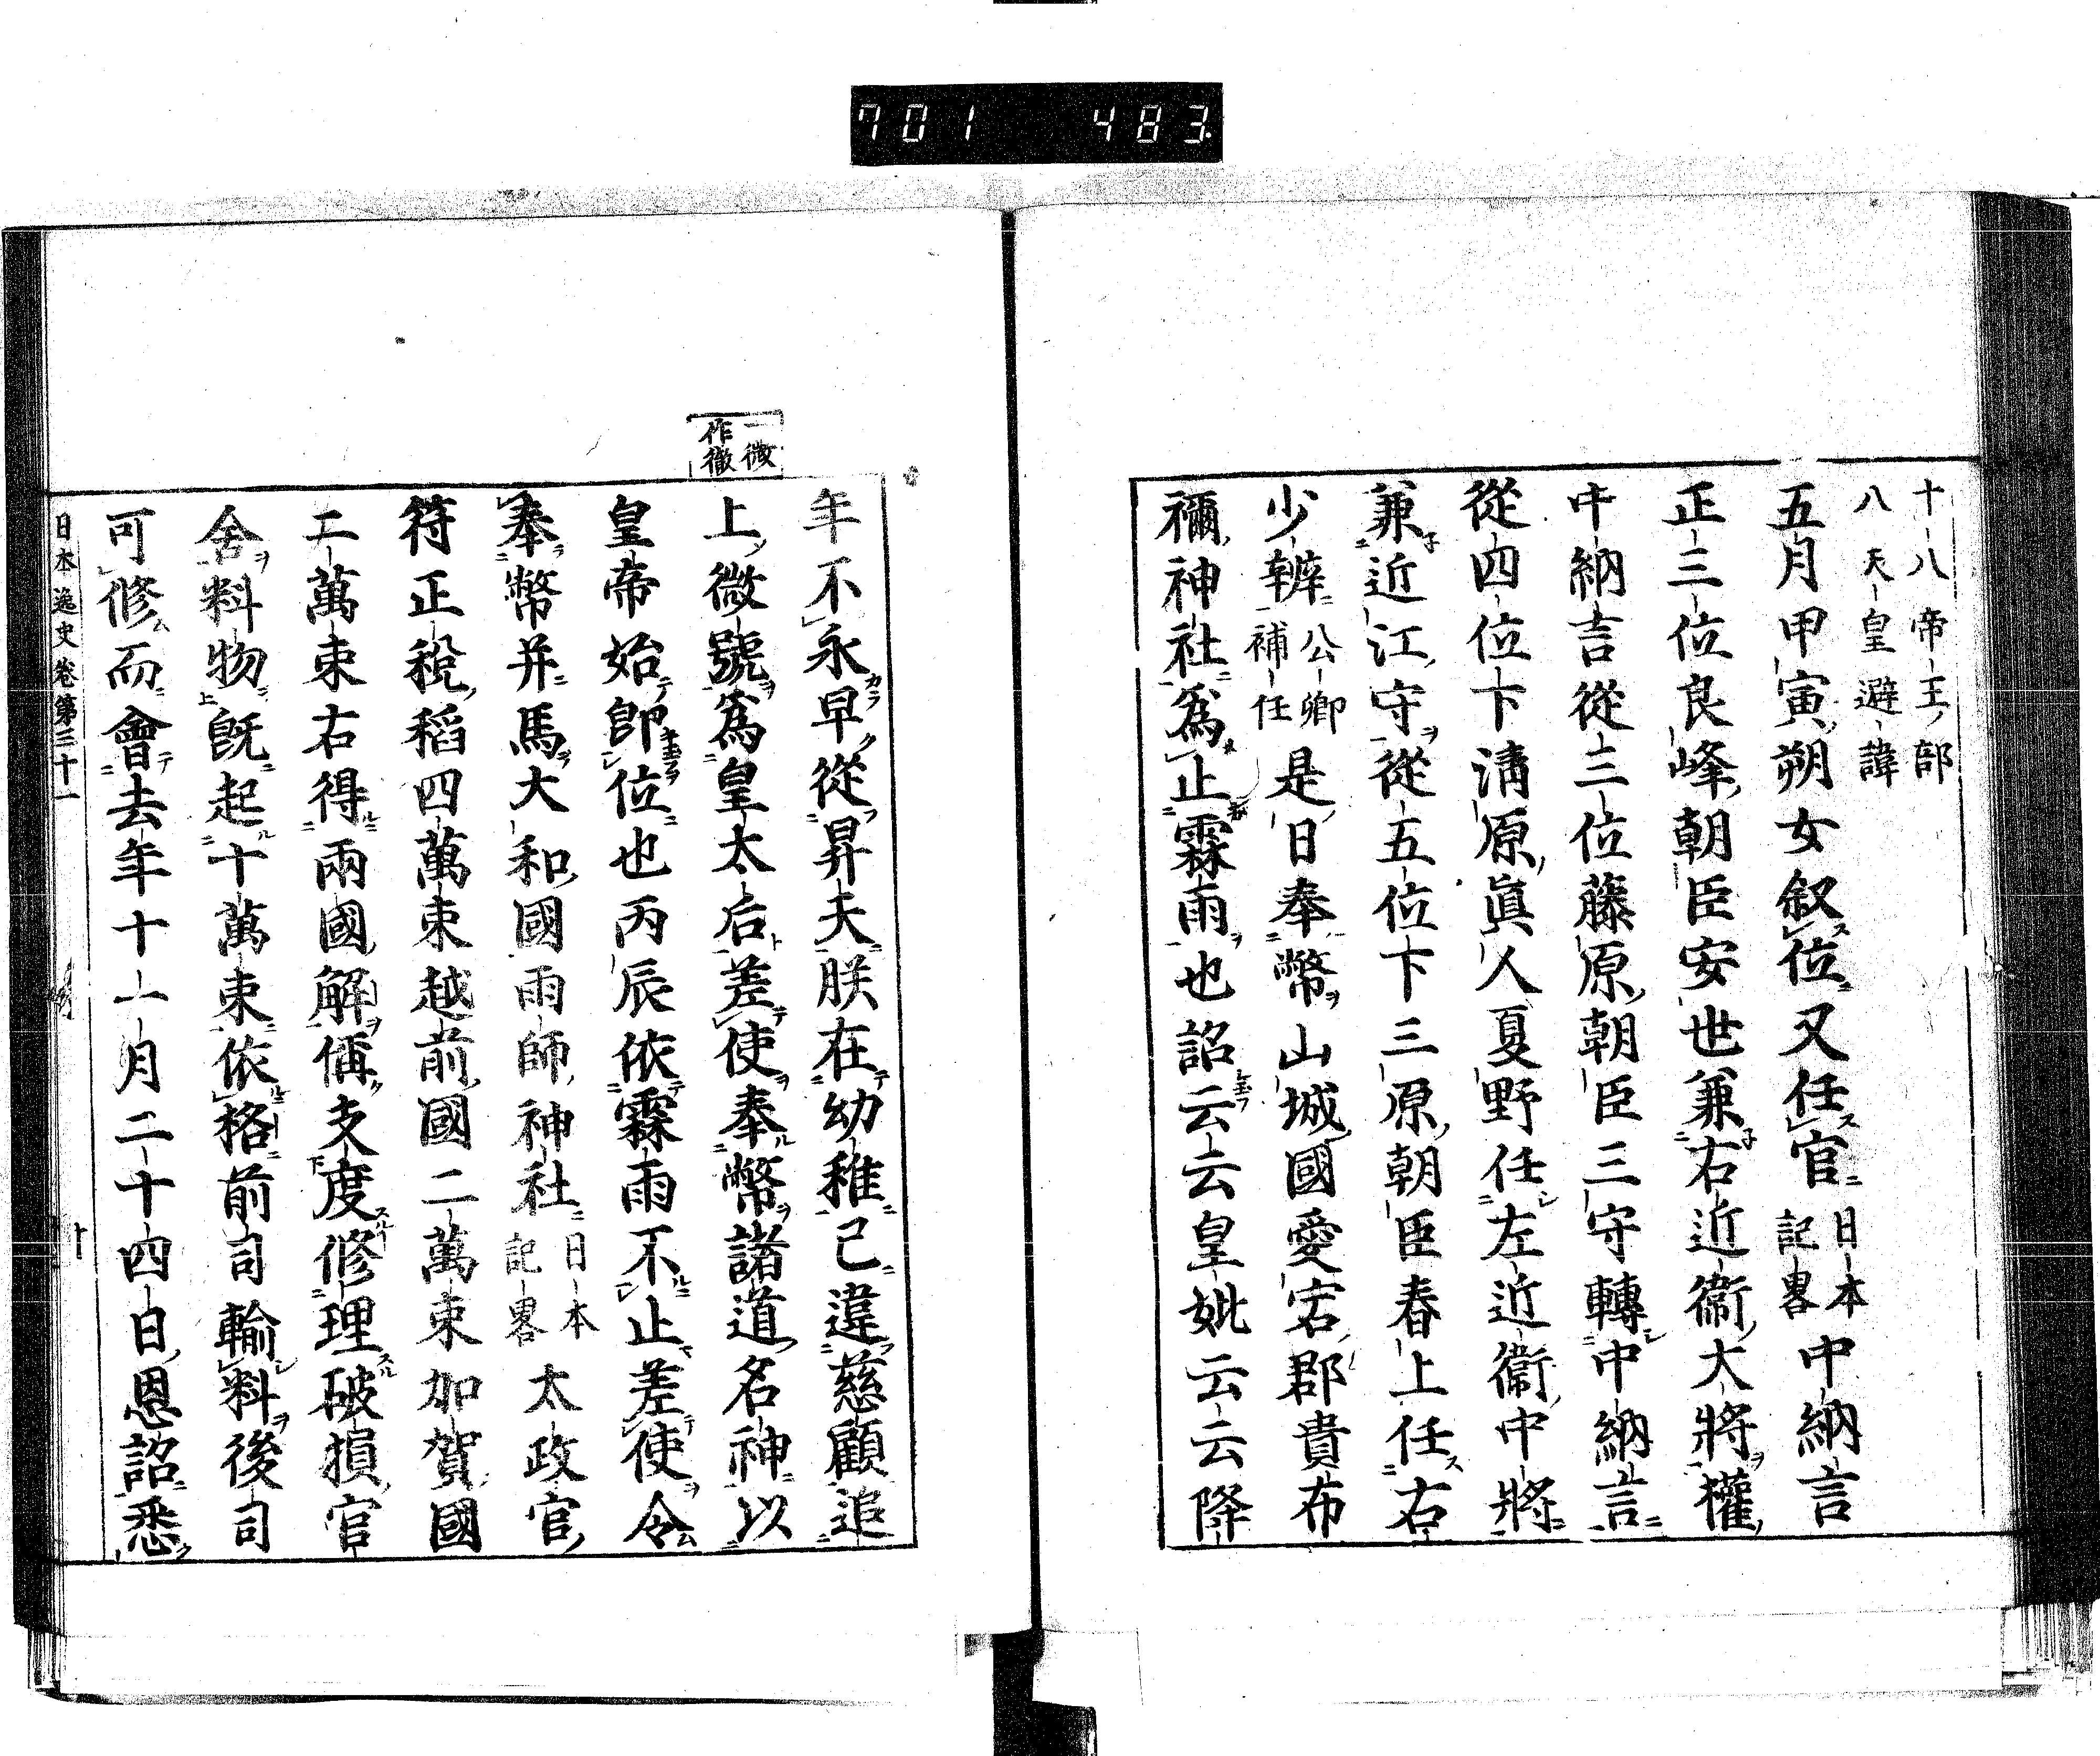 701 483
十八帝王部
八天皇避諱
五月甲寅朔女叙位又任官日本記畧中納言
正三位良峰朝臣安世兼右近衞大將權
中納言從三位藤原朝臣三守轉中納言
從四位下淸原眞人夏野任左近衞中將
兼近江守從五位下三原朝臣春上任右
少辨公卿補任是日奉幣山城國愛宕郡貴布
禰神社爲止霖雨也詔云云皇妣云云降
年不永早從昇天朕在幼稚已違慈顧追
上微號爲皇太后差使奉幣諸道名神以
皇帝始卽位也丙辰依霖雨不止差使令
奉幣并馬大和國雨師神社日本記畧太政官
符正稅稻四萬束越前國二萬束加賀國
二萬束右得兩國解偁支度修理破損官
舍料物旣起十萬束依格前司輸料後司
可修而會去年十一月二十四日恩詔悉
一微作徽
日本逸史卷第三十一
十